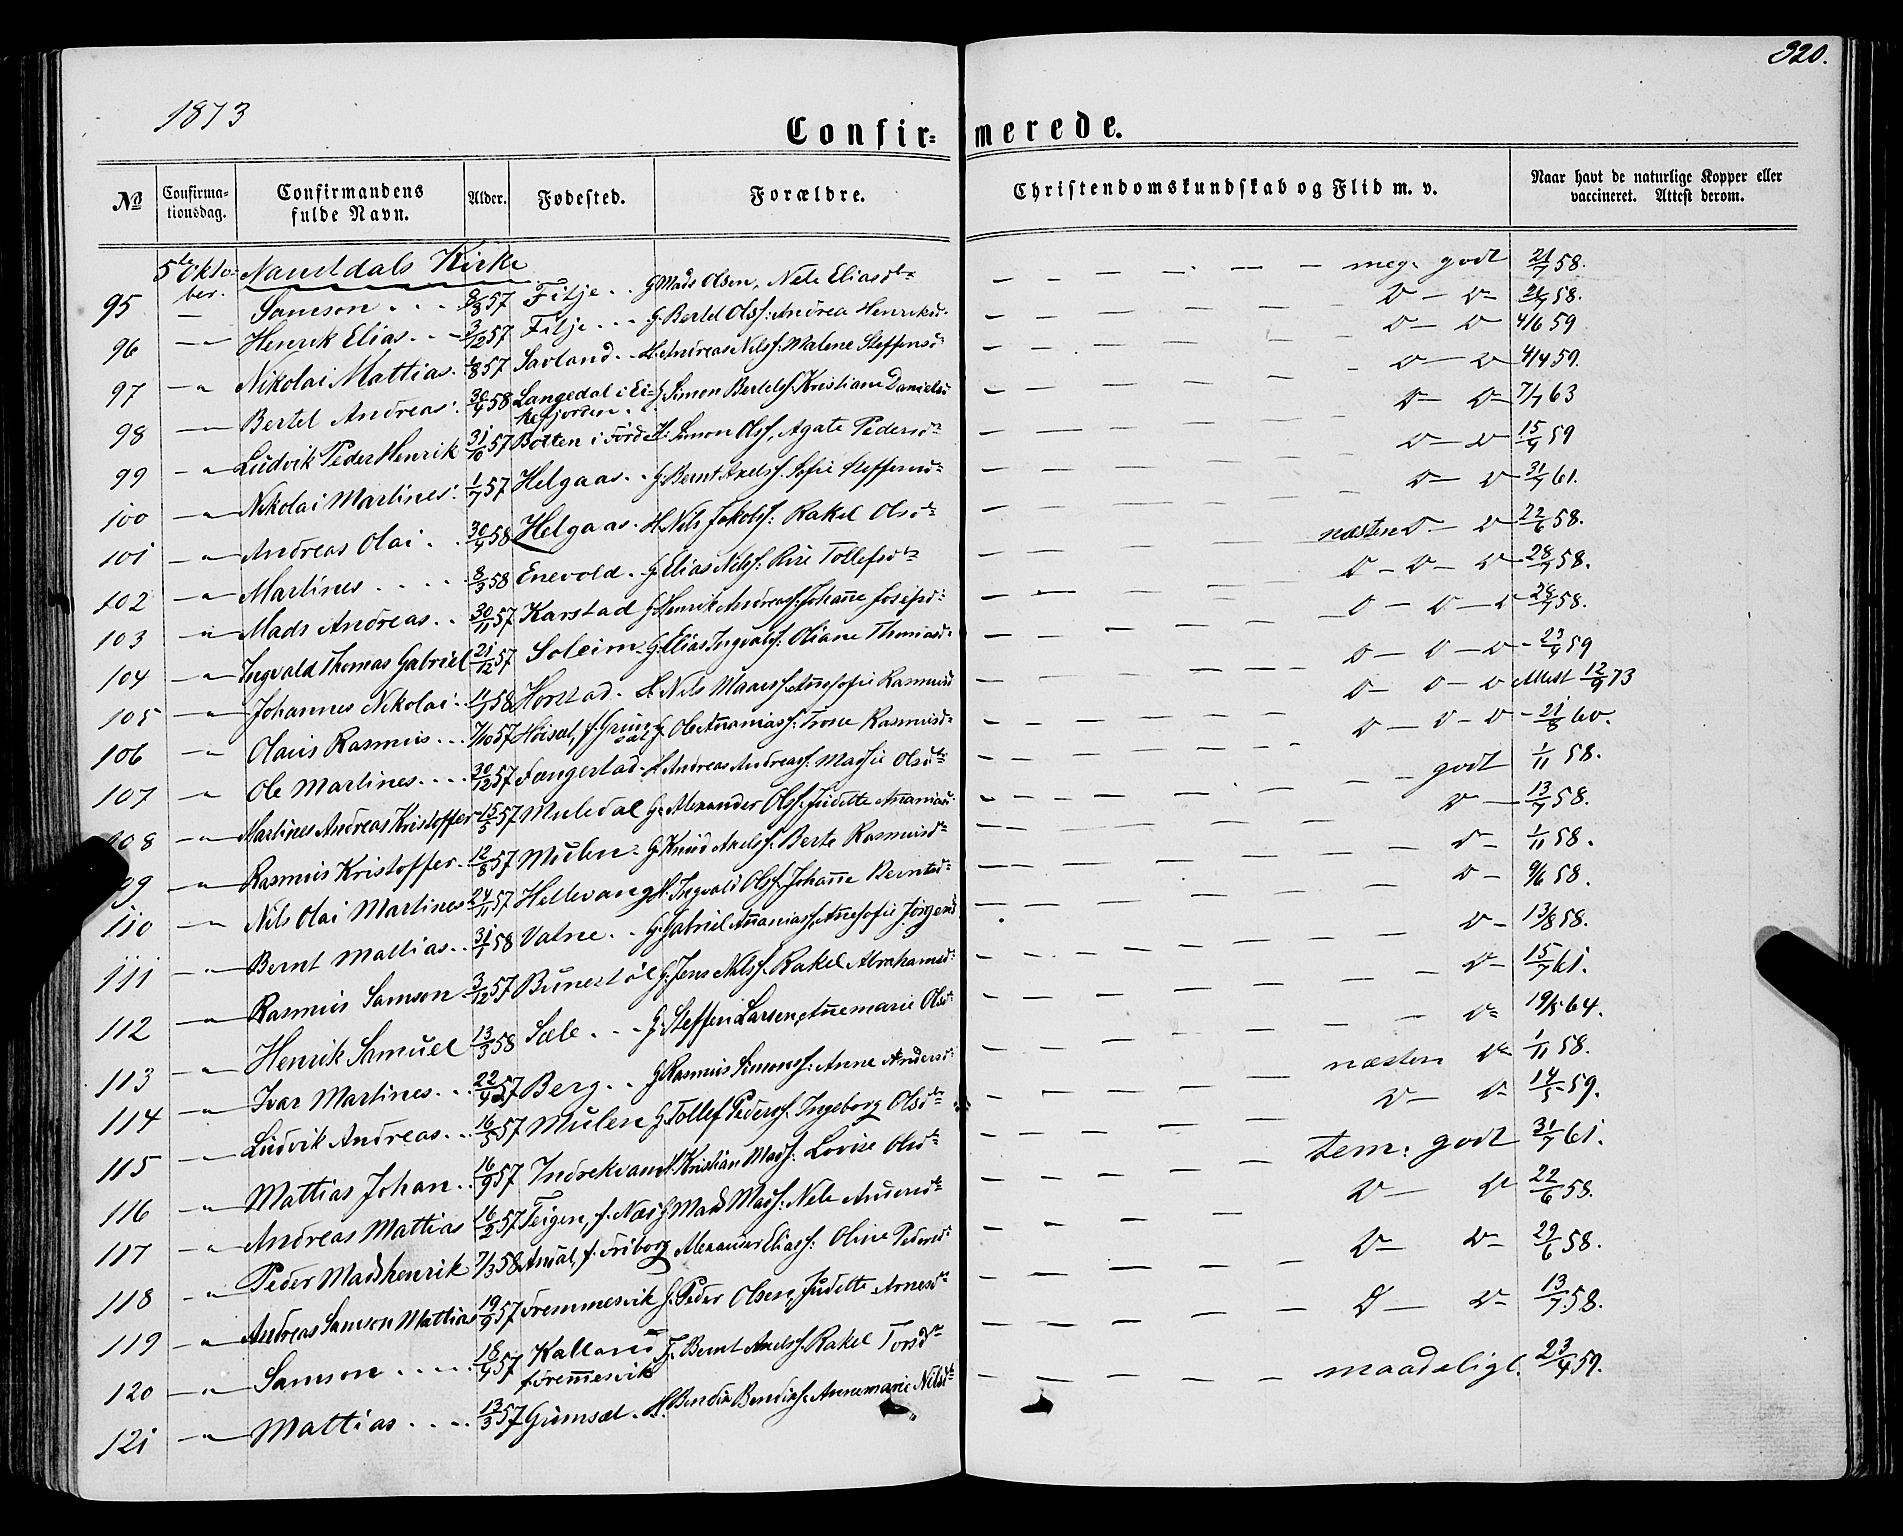 320.
1873
Confir= merede.
No Confirma-tionsdag. Confirmandens fulde Navn. Alder. Fødested. Forældre. Christendomskundskab og Flid m. v. Naar havt de naturlige Kopper eller vaccineret. Attest derom.
5te Oktober. Naustdals Kirke
95 — Samson . . . 8/8 57 Fitje . . G Mads Olsen, Nele Eliasdtr — — — — — — meg. godt 21/7 58.
96 — " Henrik Elias . . 3/12 57 Fitje . . . G. Bertel Olss: Andrea Henriksd. — — — — — D — D — 21/7 58.
97 — " Nikolai Mattias . 1/8 57 Savland . . H. Andreas Nilss: Malene Steffensd: — — — — — D — D 4/6 59
98 — " Bertel Andreas . 30/4 58 Langedal i Eikefjorden . G. Simon Bertels. Kristiane Danielsd — — — — — D — D 4/4 59.
99 — " Ludvik Peder Henrik 31/10 57 Botten i Førde H: Simon Olss, Agate Pedersdtr — — — — — D — D — 7/7 63
100 — " Nikolai Martines . 1/7 57 Helgaas . . G. Bernt Axelss. Sofie Steffensd — — — — — D — D 15/9 59
101 — " Andreas Olai . . 30/4 58 Helgaas . H. Nils Jakobs: Rakel Olsdtr — — — — — D — D 31/7 61.
102 — " Martines . . . . 8/3 58 Enevold . G Elias Nilss: Rise Tollefsdtr — — — — — næsten D — D 22/6 58.
103 — " Mads Andreas . . 30/11 57 Karstad G Henrik Andreass: Johanne Josefsd: — — — — — D — D — D 28/7 58.
104 — " Ingvald Thomas Gabriel 21/12 57 Soleim . G. Elias Ingvalds: Oliane Thomasd. — — — — — D — D — D 28/7 58.
105 — " Johannes Nikolai . . 11/1 58 Horstad . H. Nils Maass. Annesofie Rasmusd — — — — — D — D — D - 23/4 59
106 — " Olaus Rasmus . . . 7/10 57 G Ole Ananiass: Rasmusd. — — — — — D — D — D Attest 12/9 73
107 — " Ole Martines . . . . 30/12 57 Fangestad . H. Andreas Andreass. Olsdtr — — — — — D — D — D - 21/8 60.
108 — " Martines Andreas Kristoffer 15/5 57 Muledal G. Alexander Olss. Judette Ananiasd. — — — — — godt 1/11 58.
109 — " Rasmus Kristoffer . 12/8 57 Mulen . G. Knud Axelss. Berte Rasmusdtr — — — — — D — 13/7 58.
110 — " Nils Olai Martines 24/11 57 Hellevang H. Ingvald Olss. Johanne Berntsd. — — — — — D — 1/11 58.
111 — " Bernt Mattias . . 31/1 58 Vatne . . G. Gabriel Ananiass. Annesofie Jørgensd — — — — — D — 9/6 58.
112 — " Rasmus Samson . 3/12 57 Bunestøl G. Jens Nilss. Rakel Abrahamsd: — — — — — D — 13/8 58.
113 — " Henrik Samuel 13/3 58 Sæle . . . G. Steffen Larsen, Annemarie Olsd: — — — — — D — 15/7 61.
114 — " Ivar Martines . . . 22/4 57 Berg . . G Rasmus Simons: Anne Andersd: — — — — — D = 19/5 64.
115 — " Ludvik Andreas . . . 16/5 57 Mulen G. Tollef Pederss. Ingeborg Olsdtr — — — — — næsten D 1/11 58.
116 — " Mattias Johan . . 16/9 57 Indrekvam H. Kristian Mads: Lovise Olsdtr — — — — — D — D 14/5 59.
117 — " Andreas Mattias 16/2 57 Teigen, f. Næs G Mads Mads: Nele Andersdtr — — — — — tem: godt 31/7 61.
118 — " Peder Madshenrik 7/3 58 f. Friborg Alexander Eliass: Oline Pedersd: — — — — — D — D 22/6 58.
119 — " Andreas Samson Mattias 19/9 57 Fremmesvik G. Peder Olsen, Judette Arnesdtr — — — — — D — D 29/6 58.
120 — " Samson . . . . . 18/4 57 Kalland f. Fremmesvik F. Bernt Axelss. Rakel Torsdtr — — — — — D — D 13/7 58.
121 — " Mattias . . . . 13/3 57 Gumsæl . H. Bendix Bendixs. Annemarie Nilsdtr — — — — — maadeligt. 23/4 59.